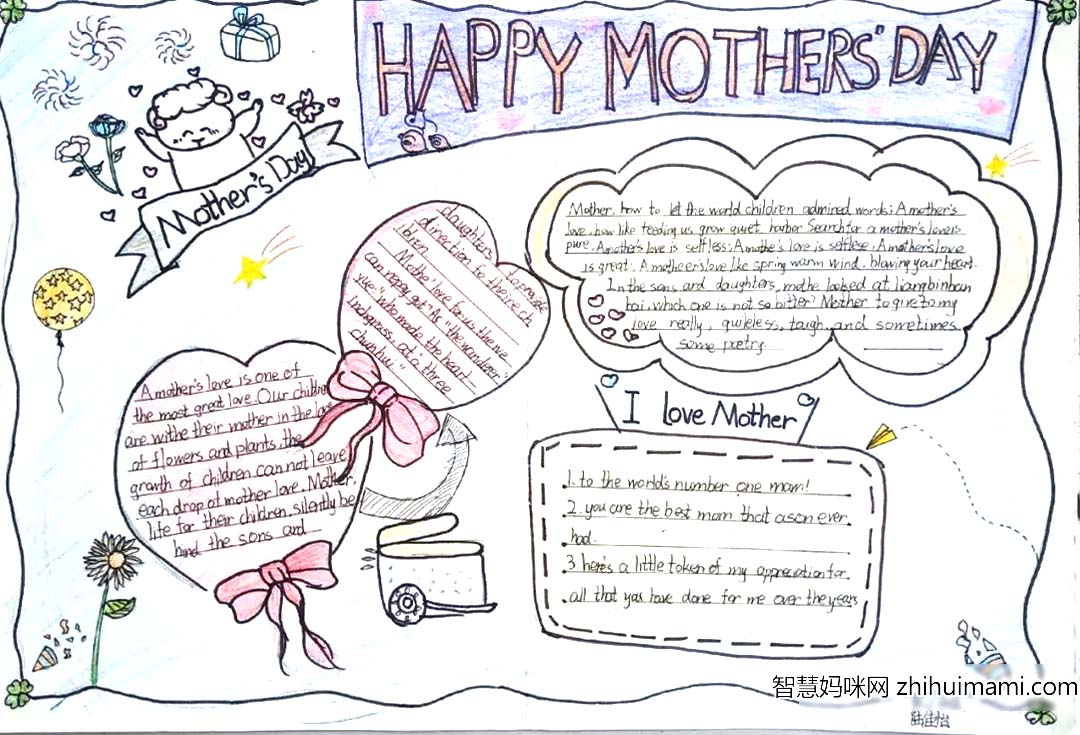 HAPPY MOTHERS' DAY
Mother's Day!
Mother, how to let the world children admired words; A mother's
love, how like feeding us grow quiet harbor Search for a mother's love is
pure. A mother's love is selfless; A mothe's love is selflese; A mother's love
is great; A motheer's love like spring warm wind, blowing your heart.
In the sons and daughters, mothe looked at liangbinban
bai, which one is not so bitter? Mother to give to my
love really, guileless, tough, and sometimes
some pretry.
daughters, to provide
direction for their ch
ibren
Mothe love for us, the we
can reppy get? As "the wanderer"
yue: "who made the heart
inchgrass, at a three
chunhui."
A mother's love is one of
the most great love. Our children
are withe their mother in the love
of flowers and plants, the
growth of children can not leave
each drop of mother love. Mother,
life for their children, silently be
hind the sons and
I love Mother
1. to the world's number one mom!
2. you are the best mom that a son ever
had.
3 here's a little token of my appreciation for
all that yas have done for me over the years
智慧妈咪网 zhihuimami.com
陆佳怡